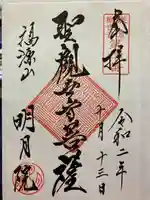 奉拝
令和二年
十月十三日
聖観世音菩薩
福源山
明月院